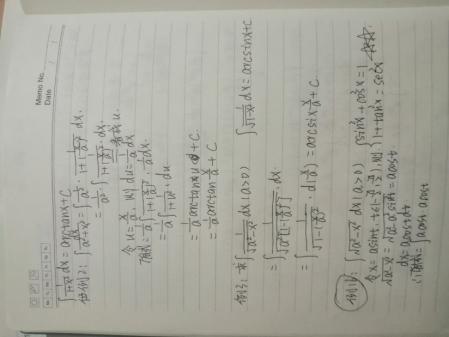 Memo No.
Date
∫ 1/(1+x²) dx = arctanx + C
例2: ∫ dx/(a²+x²) = ∫ 1/a² · 1/(1+(x/a)²) dx.
= 1/a² ∫ 1/(1+(x/a)²) dx.
令 u = x/a, 则 du = 1/a dx
原式 = 1/a ∫ 1/(1+(x/a)²) · 1/a dx.
= 1/a ∫ 1/(1+u²) du
= 1/a arctan u + C
= 1/a arctan x/a + C
例3: 求 ∫ 1/√(a²-x²) dx (a>0) ∫ 1/√(1-x²) dx = arcsinx + C
= ∫ 1/√(a²[1-(x/a)²]) · dx.
= ∫ 1/√(1-(x/a)²) · d(x/a) = arcsin x/a + C
例11: ∫ √(a²-x²) dx (a>0) sin²x + cos²x = 1
令 x = asint, 则 1+tan²x = sec²x
√(a²-x²) = √(a²-a²sin²t) = acost
dx = acost dt
∴ 原式 = ∫ acost · acost